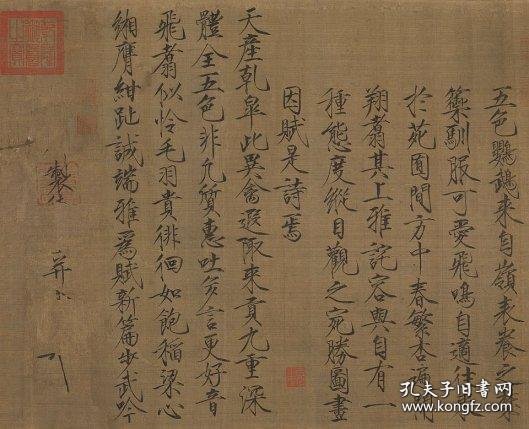 五色鸚鵡来自嶺表養之禁
籞馴服可愛飛鳴自適往来
於苑囿間方中春繁杏遍開
翔翥其上雅詫容與自有一
種態度縱目觀之宛勝圖畫
因賦是詩焉
天産乾皐此異禽遐陬来貢九重深
體全五色非凡質惠吐多言更好音
飛翥似怜毛羽貴徘徊如飽稻粱心
緗膺紺趾誠端雅爲賦新篇步武吟
孔夫子旧书网
KONGFZ.COM